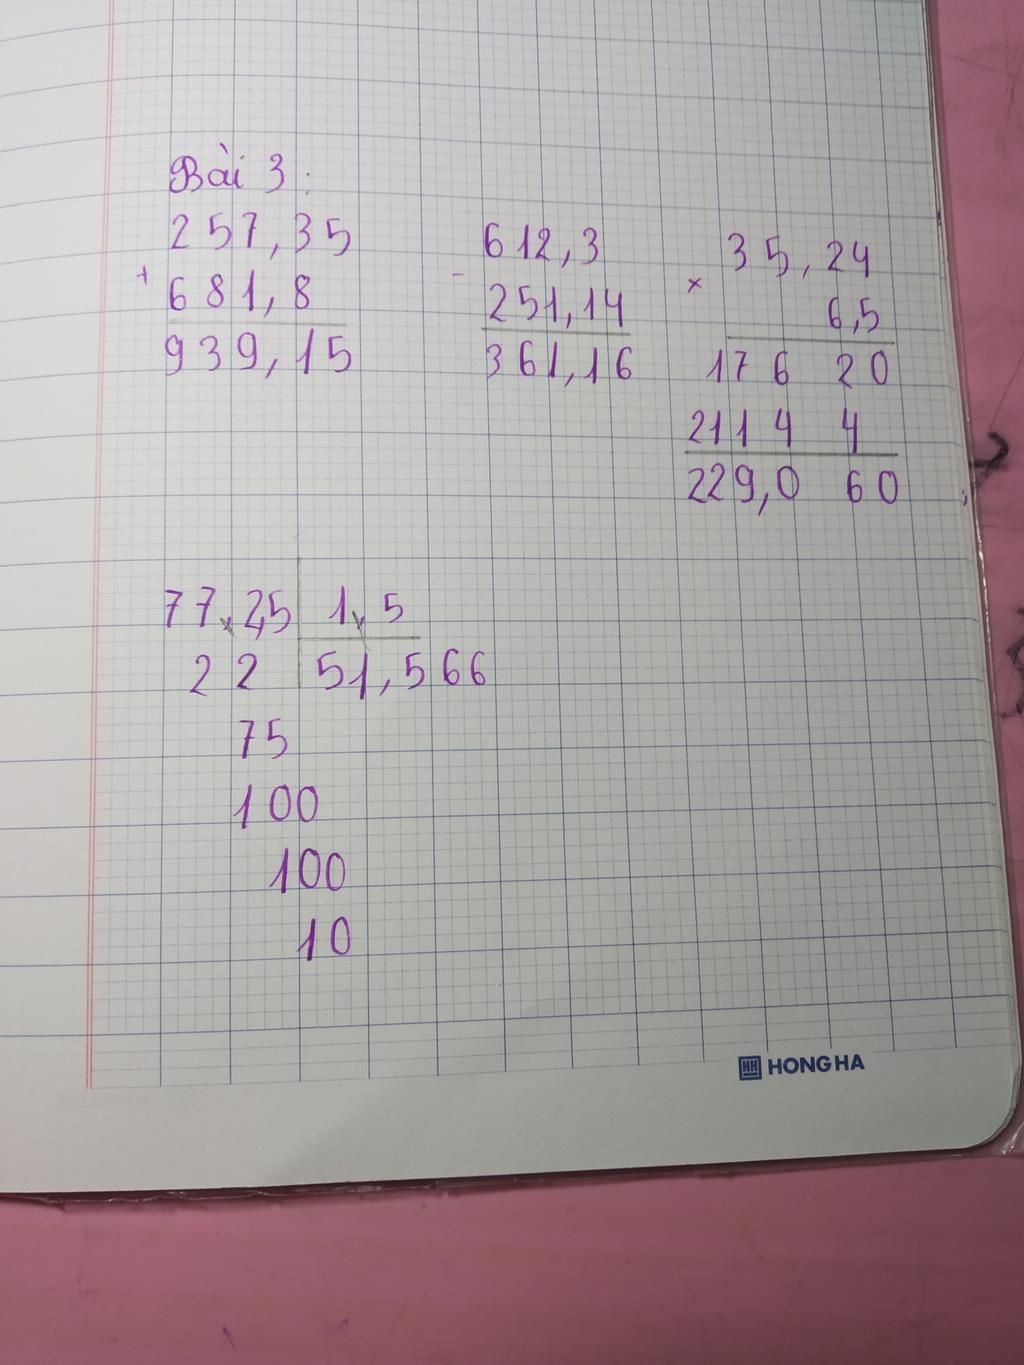 Bài 3:
257,35
+
681,8
939,15
612,3
-
251,14
361,16
35,24
×
6,5
176 20
2114 4
229,0 60
77,2,5 1,5
22 51,566
75
100
100
10
HONG HA